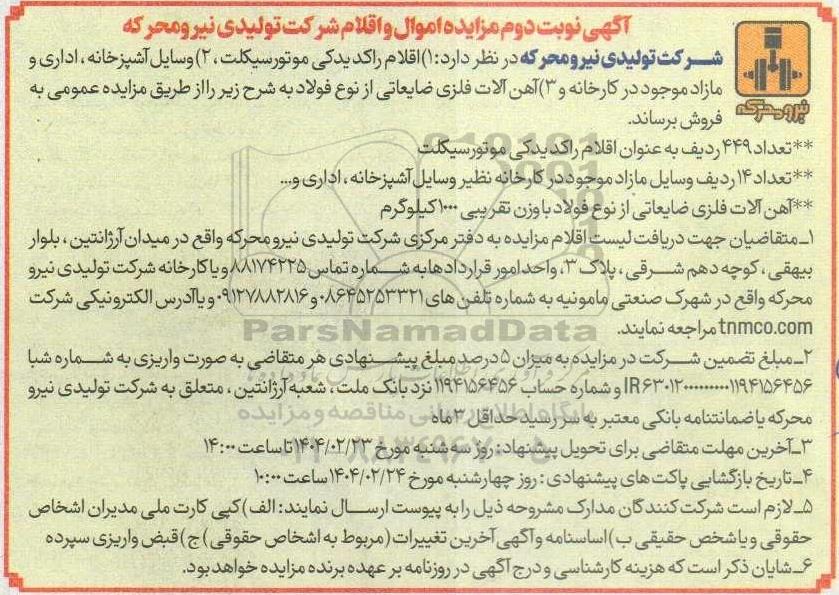 آگهی نوبت دوم مزایده اموال و اقلام شرکت تولیدی نیرو محرکه
شرکت تولیدی نیرو محرکه در نظر دارد: ۱) اقلام راکد یدکی موتورسیکلت، ۲) وسایل آشپزخانه، اداری و
مازاد موجود در کارخانه و ۳) آهن آلات فلزی ضایعاتی از نوع فولاد به شرح زیر را از طریق مزایده عمومی به
فروش برساند.
نیرو محرکه
**تعداد ۴۴۹ ردیف به عنوان اقلام راکد یدکی موتورسیکلت
**تعداد ۱۴ ردیف وسایل مازاد موجود در کارخانه نظیر وسایل آشپزخانه، اداری و...
**آهن آلات فلزی ضایعاتی از نوع فولاد با وزن تقریبی ۱۰۰۰ کیلوگرم
۱ـ متقاضیان جهت دریافت لیست اقلام مزایده به دفتر مرکزی شرکت تولیدی نیرو محرکه واقع در میدان آرژانتین، بلوار
بیهقی، کوچه دهم شرقی، پلاک ۳، واحد امور قراردادها به شماره تماس ۸۸۱۷۴۲۲۵ و یا کارخانه شرکت تولیدی نیرو
محرکه واقع در شهرک صنعتی مامونیه به شماره تلفن های ۰۸۶۴۵۲۵۳۳۲۱ و ۰۹۱۲۷۸۸۲۸۱۶ و یا آدرس الکترونیکی شرکت
tnmco.com مراجعه نمایند.
ParsNamadData
۲ـ مبلغ تضمین شرکت در مزایده به میزان ۵ درصد مبلغ پیشنهادی هر متقاضی به صورت واریزی به شماره شبا
IR۶۳۰۱۲۰۰۰۰۰۰۰۰۰۰۱۱۹۴۱۵۶۴۵۶ و شماره حساب ۱۱۹۴۱۵۶۴۵۶ نزد بانک ملت، شعبه آرژانتین، متعلق به شرکت تولیدی نیرو
محرکه یا ضمانتنامه بانکی معتبر به سر رسید حداقل ۳ ماه
پایگاه اطلاع رسانی مناقصه و مزایده
۳ـ آخرین مهلت متقاضی برای تحویل پیشنهاد: روز سه شنبه مورخ ۱۴۰۴/۰۲/۲۳ تا ساعت ۱۴:۰۰
۴ـ تاریخ بازگشایی پاکت های پیشنهادی: روز چهارشنبه مورخ ۱۴۰۴/۰۲/۲۴ ساعت ۱۰:۰۰
۵ـ لازم است شرکت کنندگان مدارک مشروحه ذیل را به پیوست ارسال نمایند: الف) کپی کارت ملی مدیران اشخاص
حقوقی و یا شخص حقیقی ب) اساسنامه و آگهی آخرین تغییرات (مربوط به اشخاص حقوقی) ج) قبض واریزی سپرده
۶ـ شایان ذکر است که هزینه کارشناسی و درج آگهی در روزنامه بر عهده برنده مزایده خواهد بود.